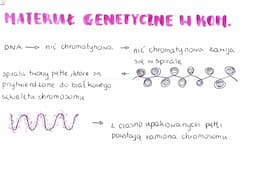 MATERIAŁ GENETYCZNE W KOM.
DNA → nić chromatynowa → nić chromatynowa zawija
się w spirale
spirala tworzy pętle, które są
przytwierdzone do białkowego
szkieletu chromosomu
→ z ciasno upakowanych pętli
powstają ramiona chromosomu